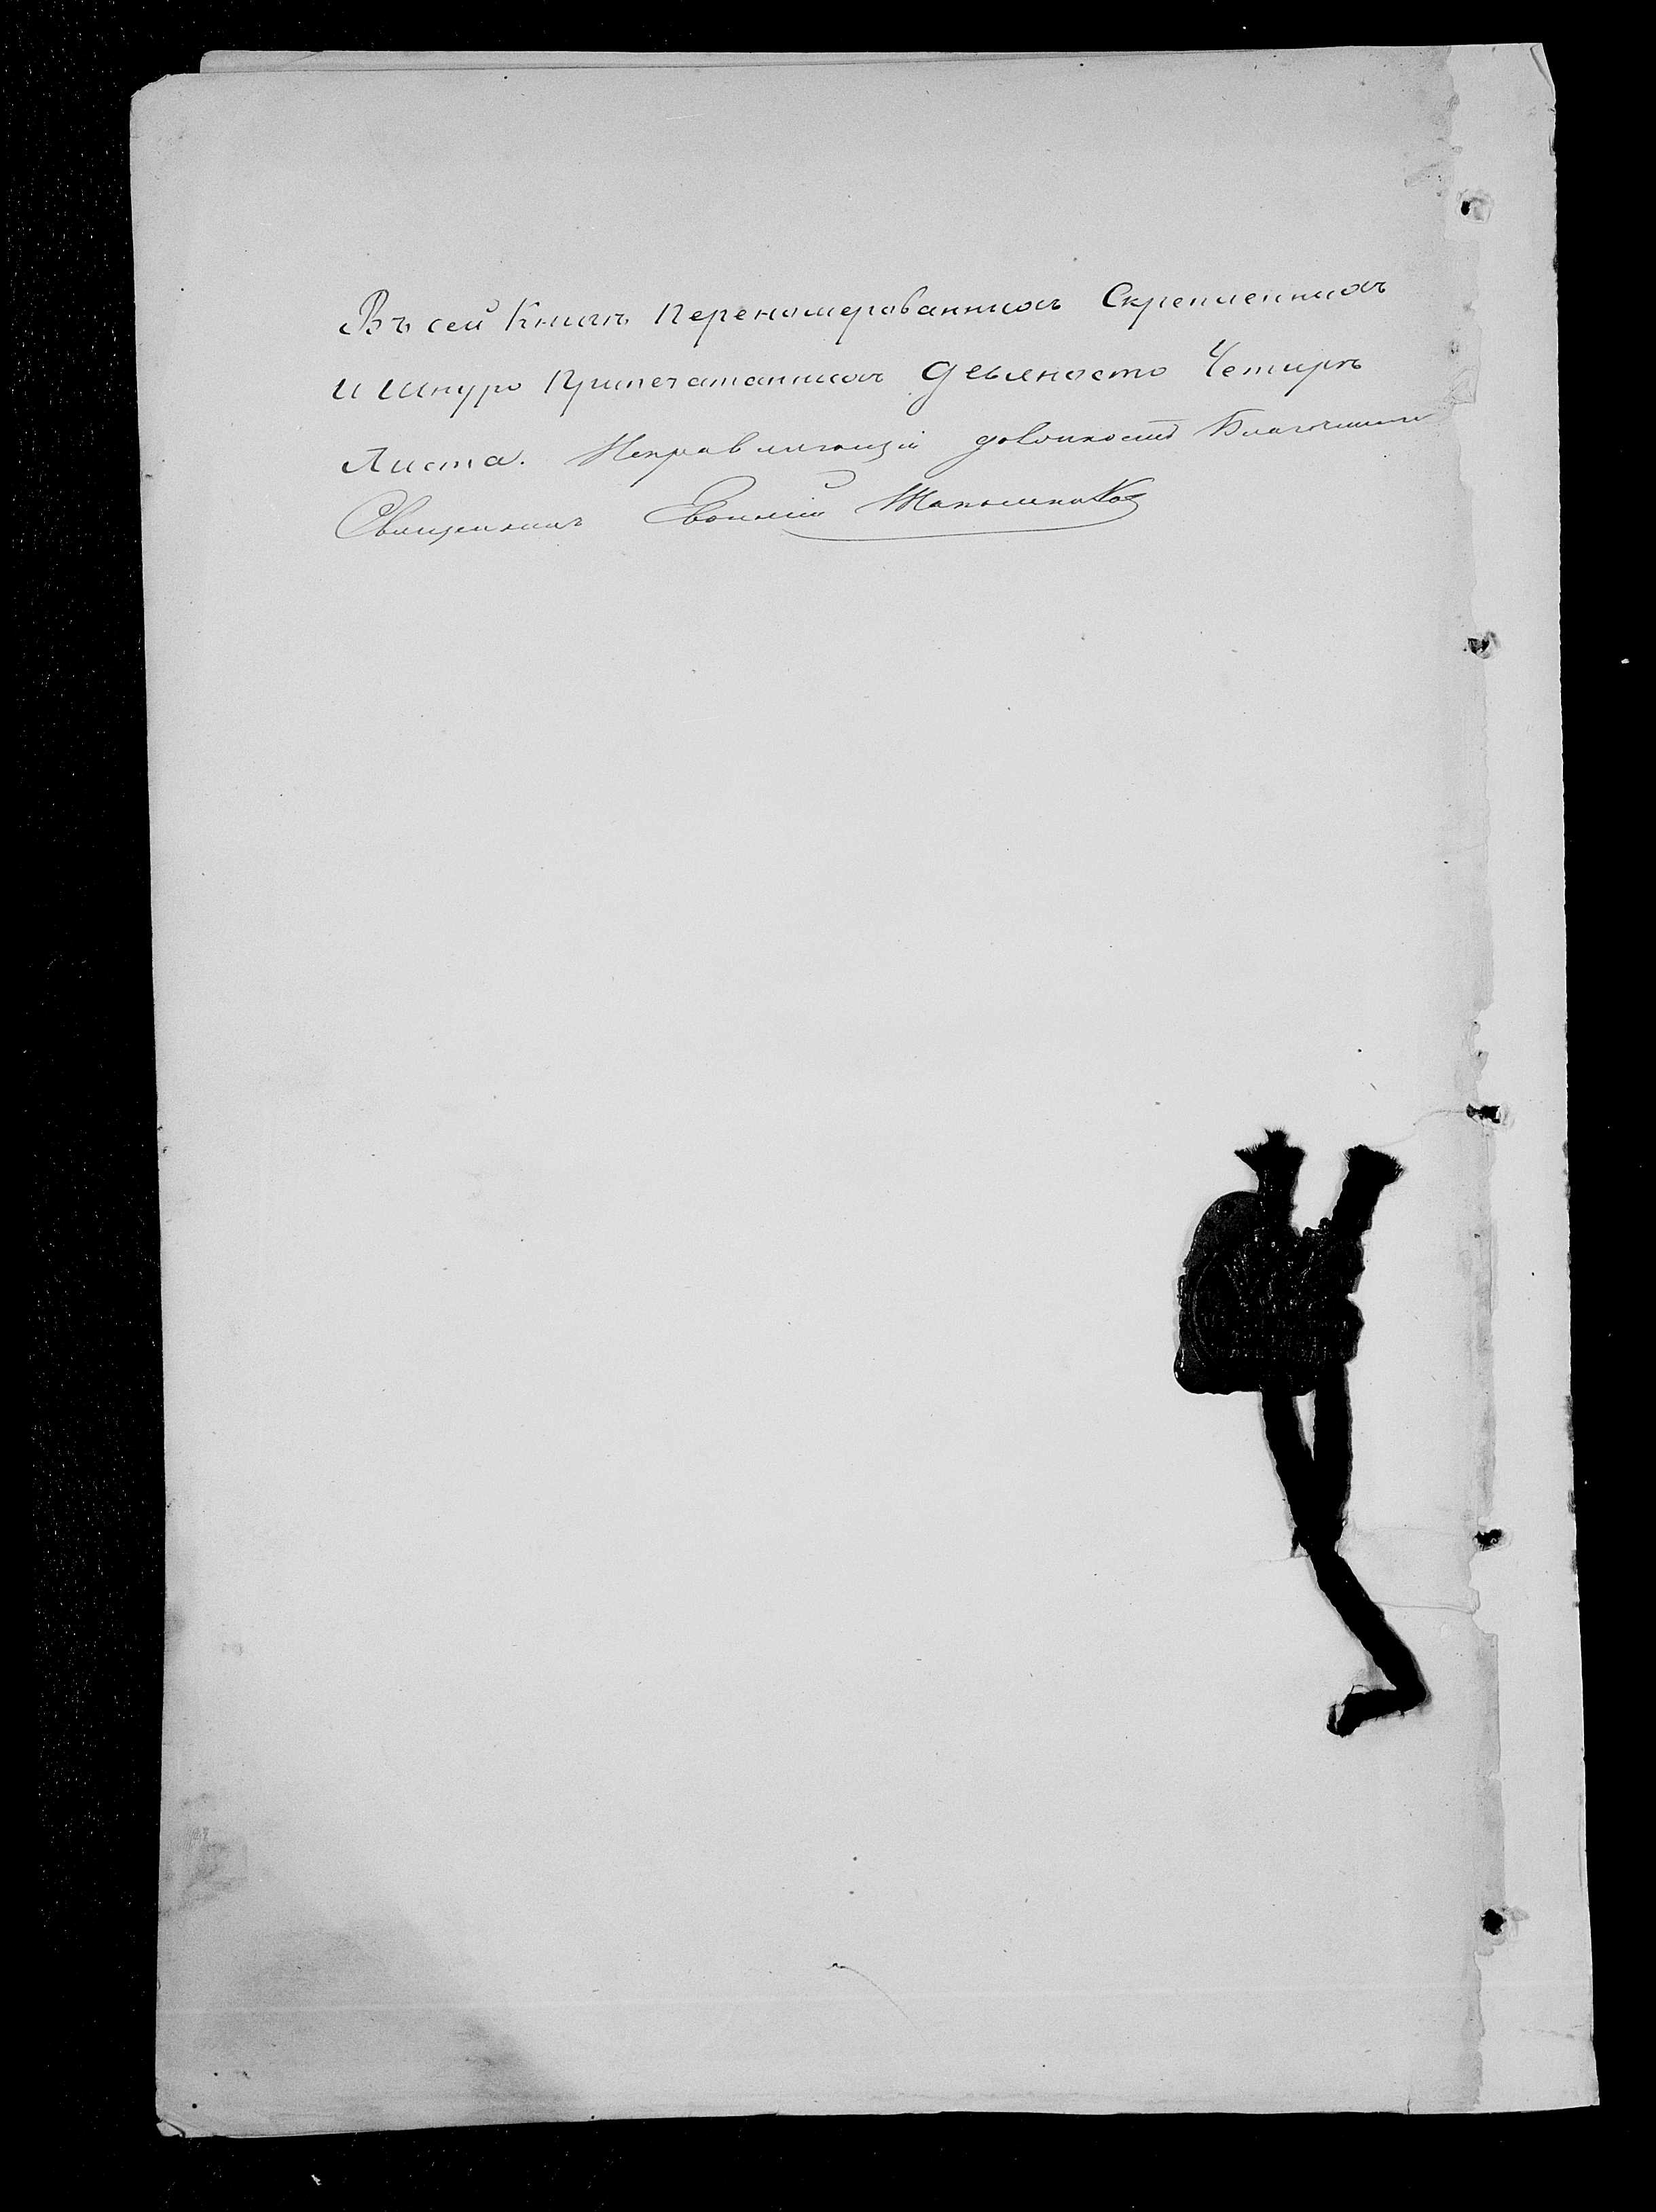 Въ сей Книгѣ переномерованныхъ Скрепленныхъ
и шнуро припечатанныхъ девяносто четырѣ
Листа. Исправляющій должность Благочиннаго
Священникъ Евѳимій